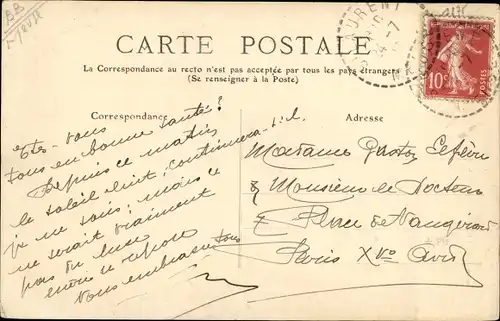 BB
CARTE POSTALE
La Correspondance au recto n'est pas acceptée par tous les pays étrangers
(Se renseigner à la Poste)
Correspondance
Adresse
10c
POSTES
Êtes-vous
tous en bonne santé?
Depuis ce matin
le soleil luit; continuera-t-il,
je ne sais; mais ce
ne serait vraiment
pas du luxe
vous embrasse tous
Madame Gaston
& Monsieur le Docteur
Place de Vaugirard
Paris XVe Arrt